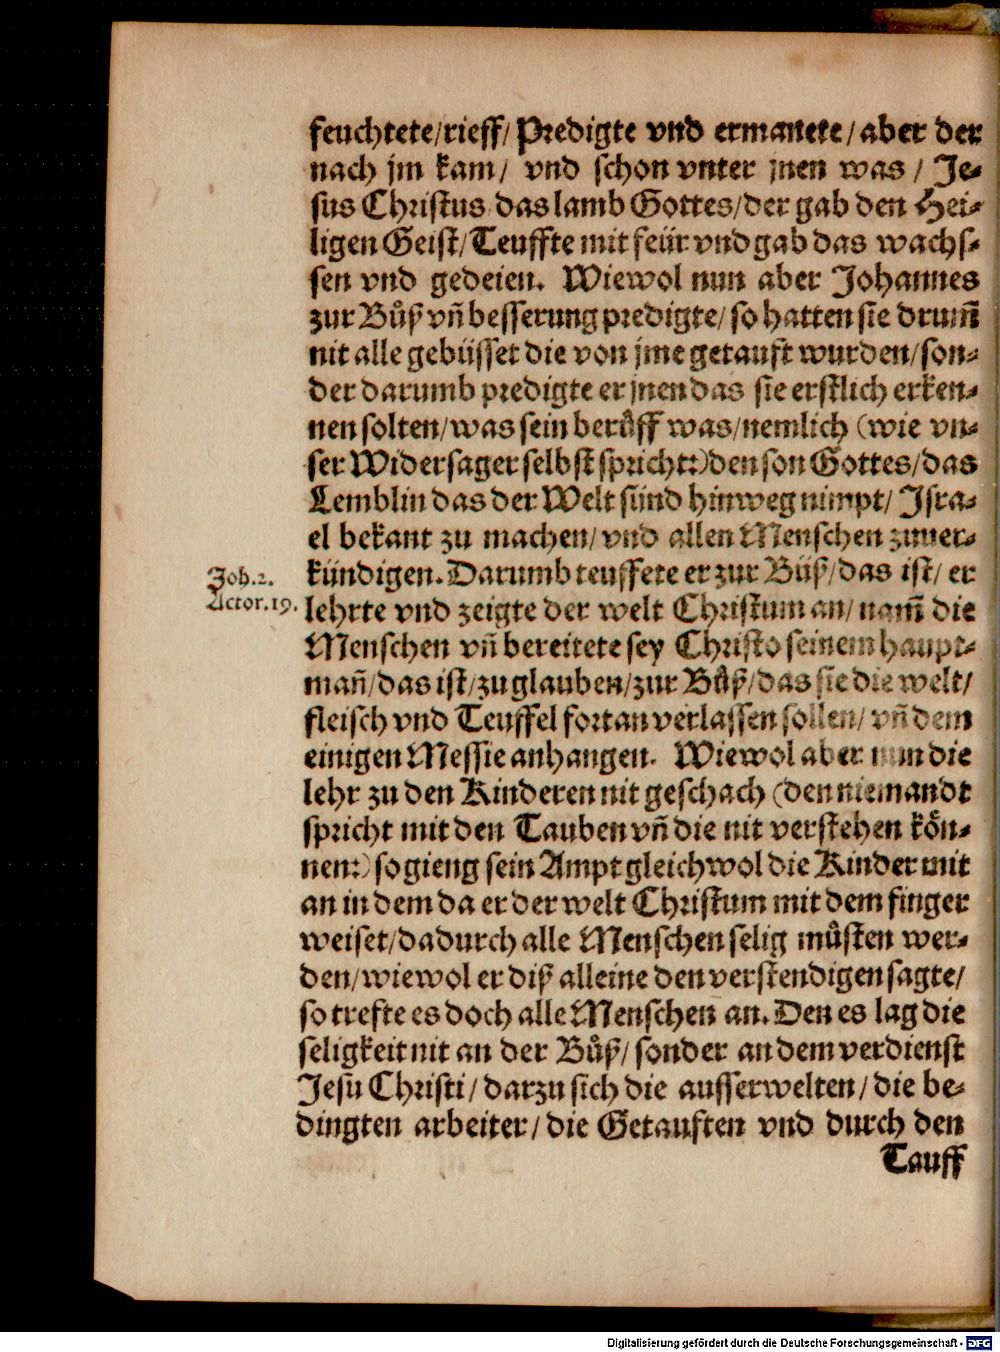 feuchtete/rieff/ Predigte vnd ermanete/ aber der
nach jm kam/ vnd schon vnter jnen was/ Je⸗
sus Christus das lamb Gottes/der gab den Hei⸗
ligen Geist/ Teuffte mit feür vnd gab das wachs⸗
sen vnd gedeien. Wiewol nun aber Johannes
zur Bůß vn̄ besserung predigte/ so hatten sie drum̄
nit alle gebüsset die von jme getauft wurden/ son⸗
der darumb predigte er jnen das sie erstlich erken⸗
nen solten/ was sein berůff was/ nemlich (wie vn⸗
ser Widersager selbst spricht:) den son Gottes/ das
Lemblin das der Welt sünd hinweg nimpt/ Isra⸗
el bekant zu machen/ vnd allen Menschen zuuer⸗
Joh. 2.
Actor. 19.
kündigen. Darumb teuffete er zur Büß/ das ist/ er
lehrte vnd zeigte der welt Christum an/ nam̄ die
Menschen vn̄ bereitete sey Christo seinem haupt⸗
man̄/ das ist/ zu glauben/ zur Bůß/ das sie die welt/
fleisch vnd Teuffel fortan verlassen sollen/ vn̄ dem
einigen Messie anhangen. Wiewol aber nun die
lehr zu den Kinderen nit geschach (den niemandt
spricht mit den Tauben vn̄ die nit verstehen kön⸗
nen:) so gieng sein Ampt gleichwol die Kinder mit
an in dem da er der welt Christum mit dem finger
weiset/ dadurch alle Menschen selig můsten wer⸗
den/ wiewol er diß alleine den verstendigen sagte/
so trefte es doch alle Menschen an. Den es lag die
seligkeit nit an der Bůß/ sonder an dem verdienst
Jesu Christi/ darzu sich die ausserwelten/ die be⸗
dingten arbeiter/ die Getauften vnd durch den
Tauff
Digitalisierung gefördert durch die Deutsche Forschungsgemeinschaft - DFG